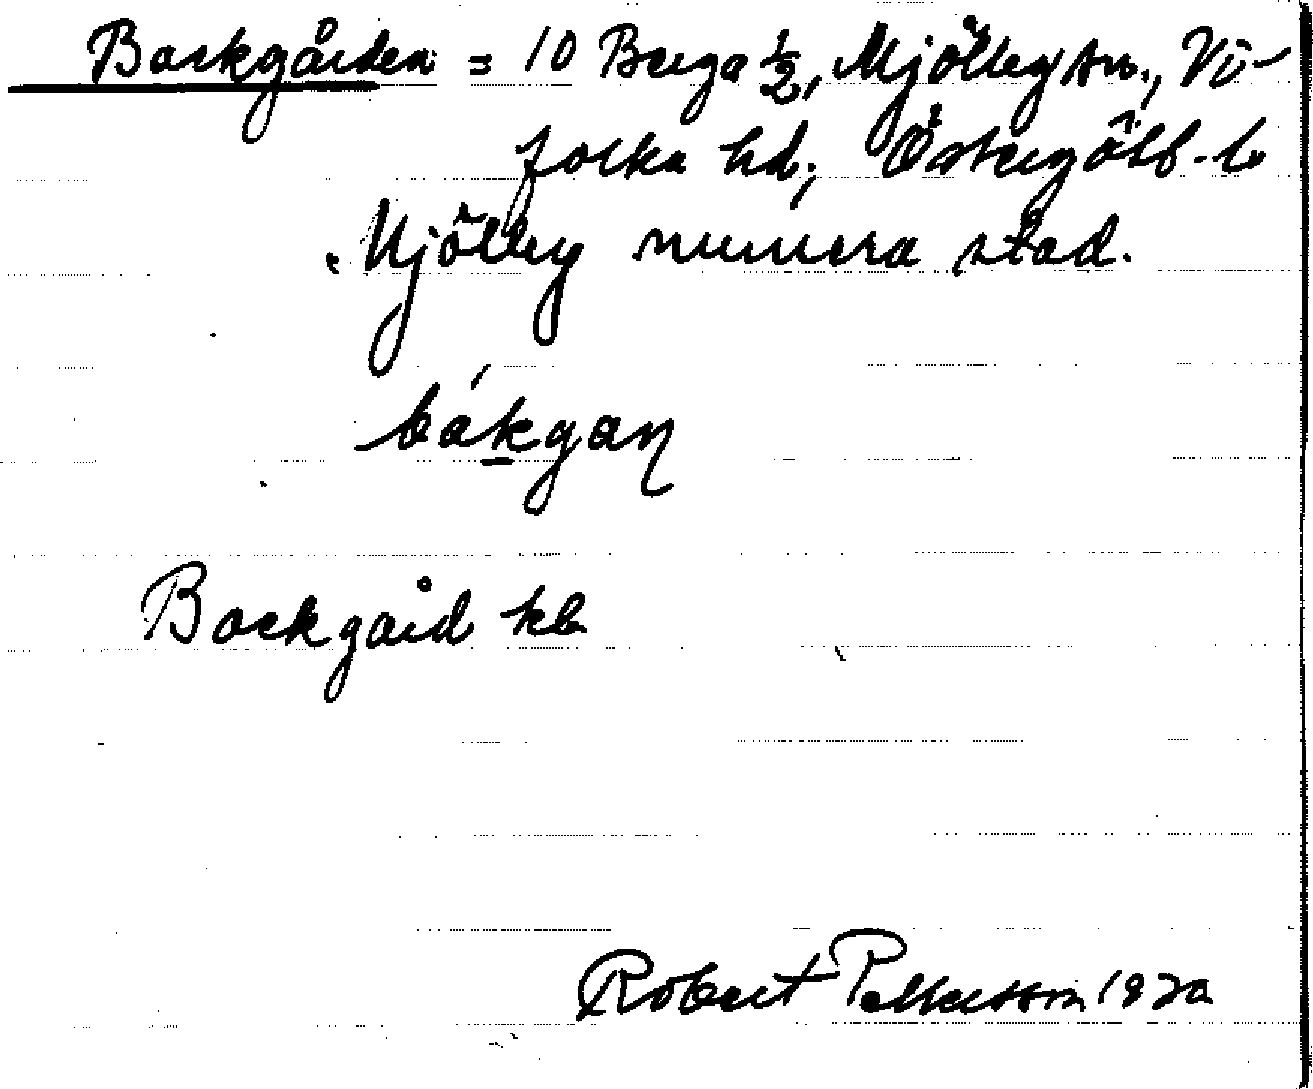 Backgården = 10 Berga ½, Mjölby sn., Vi-
folka hd; Östergötl-l
Mjölby numera stad.
bákgaɳ
Backgård kb
Robert Pettersson 192